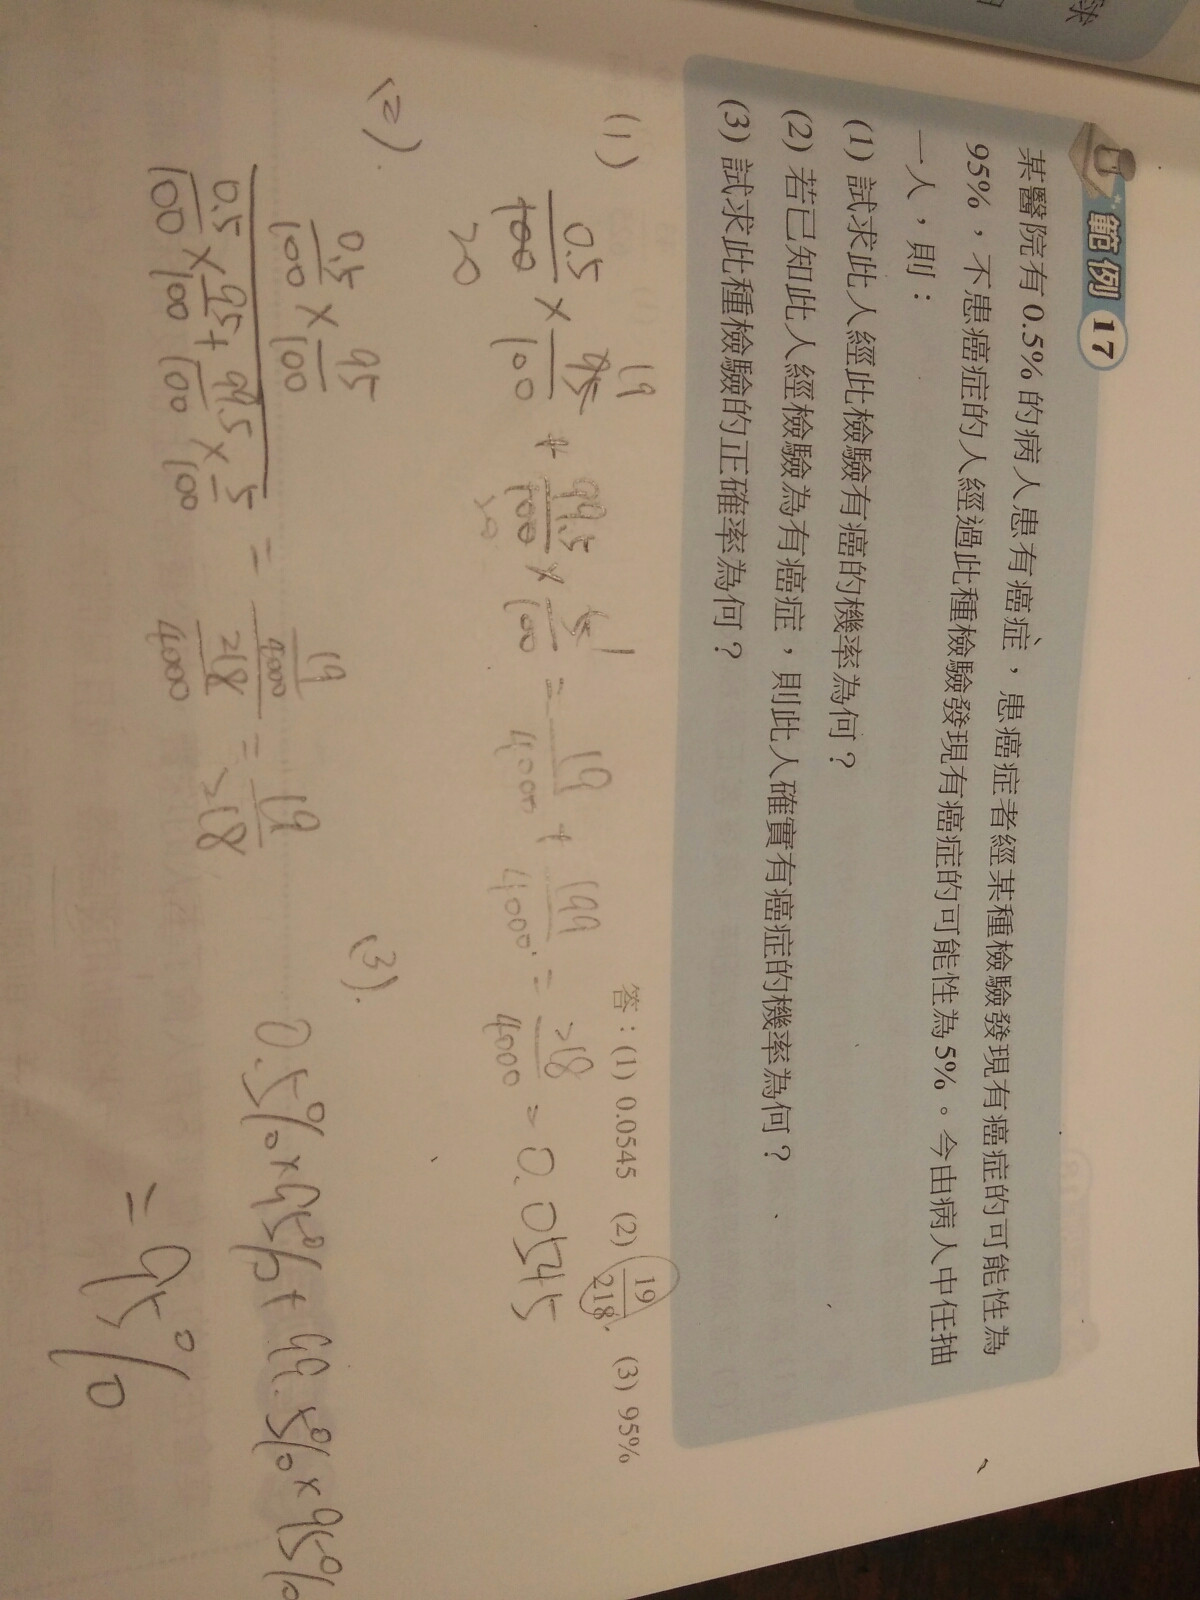 範例 17
某醫院有 0.5% 的病人患有癌症，患癌症者經某種檢驗發現有癌症的可能性為
95%，不患癌症的人經過此種檢驗發現有癌症的可能性為 5%。今由病人中任抽
一人，則：
(1) 試求此人經此檢驗有癌的機率為何？
(2) 若已知此人經檢驗為有癌症，則此人確實有癌症的機率為何？
(3) 試求此種檢驗的正確率為何？
答：(1) 0.0545 (2) 19/218 (3) 95%
(1) 0.5/100 20 × 95/100 19 + 99.5/100 20 × 5/100 1 = 19/4000 + 199/4000 = 218/4000 = 0.0545
(2). 0.5/100 × 95/100
0.5/100 × 95/100 + 99.5/100 × 5/100 = 19/4000 / 218/4000 = 19/218
(3). 0.5% × 95% + 99.5% × 95%
= 95%